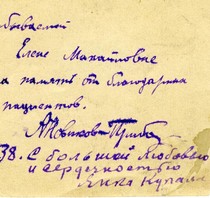 бываемой
Елене Михайловне
на память от благодарных
пациентов.
А. Новиков-Прибой
38. С большой любовью
и сердечностью
Янка Купала